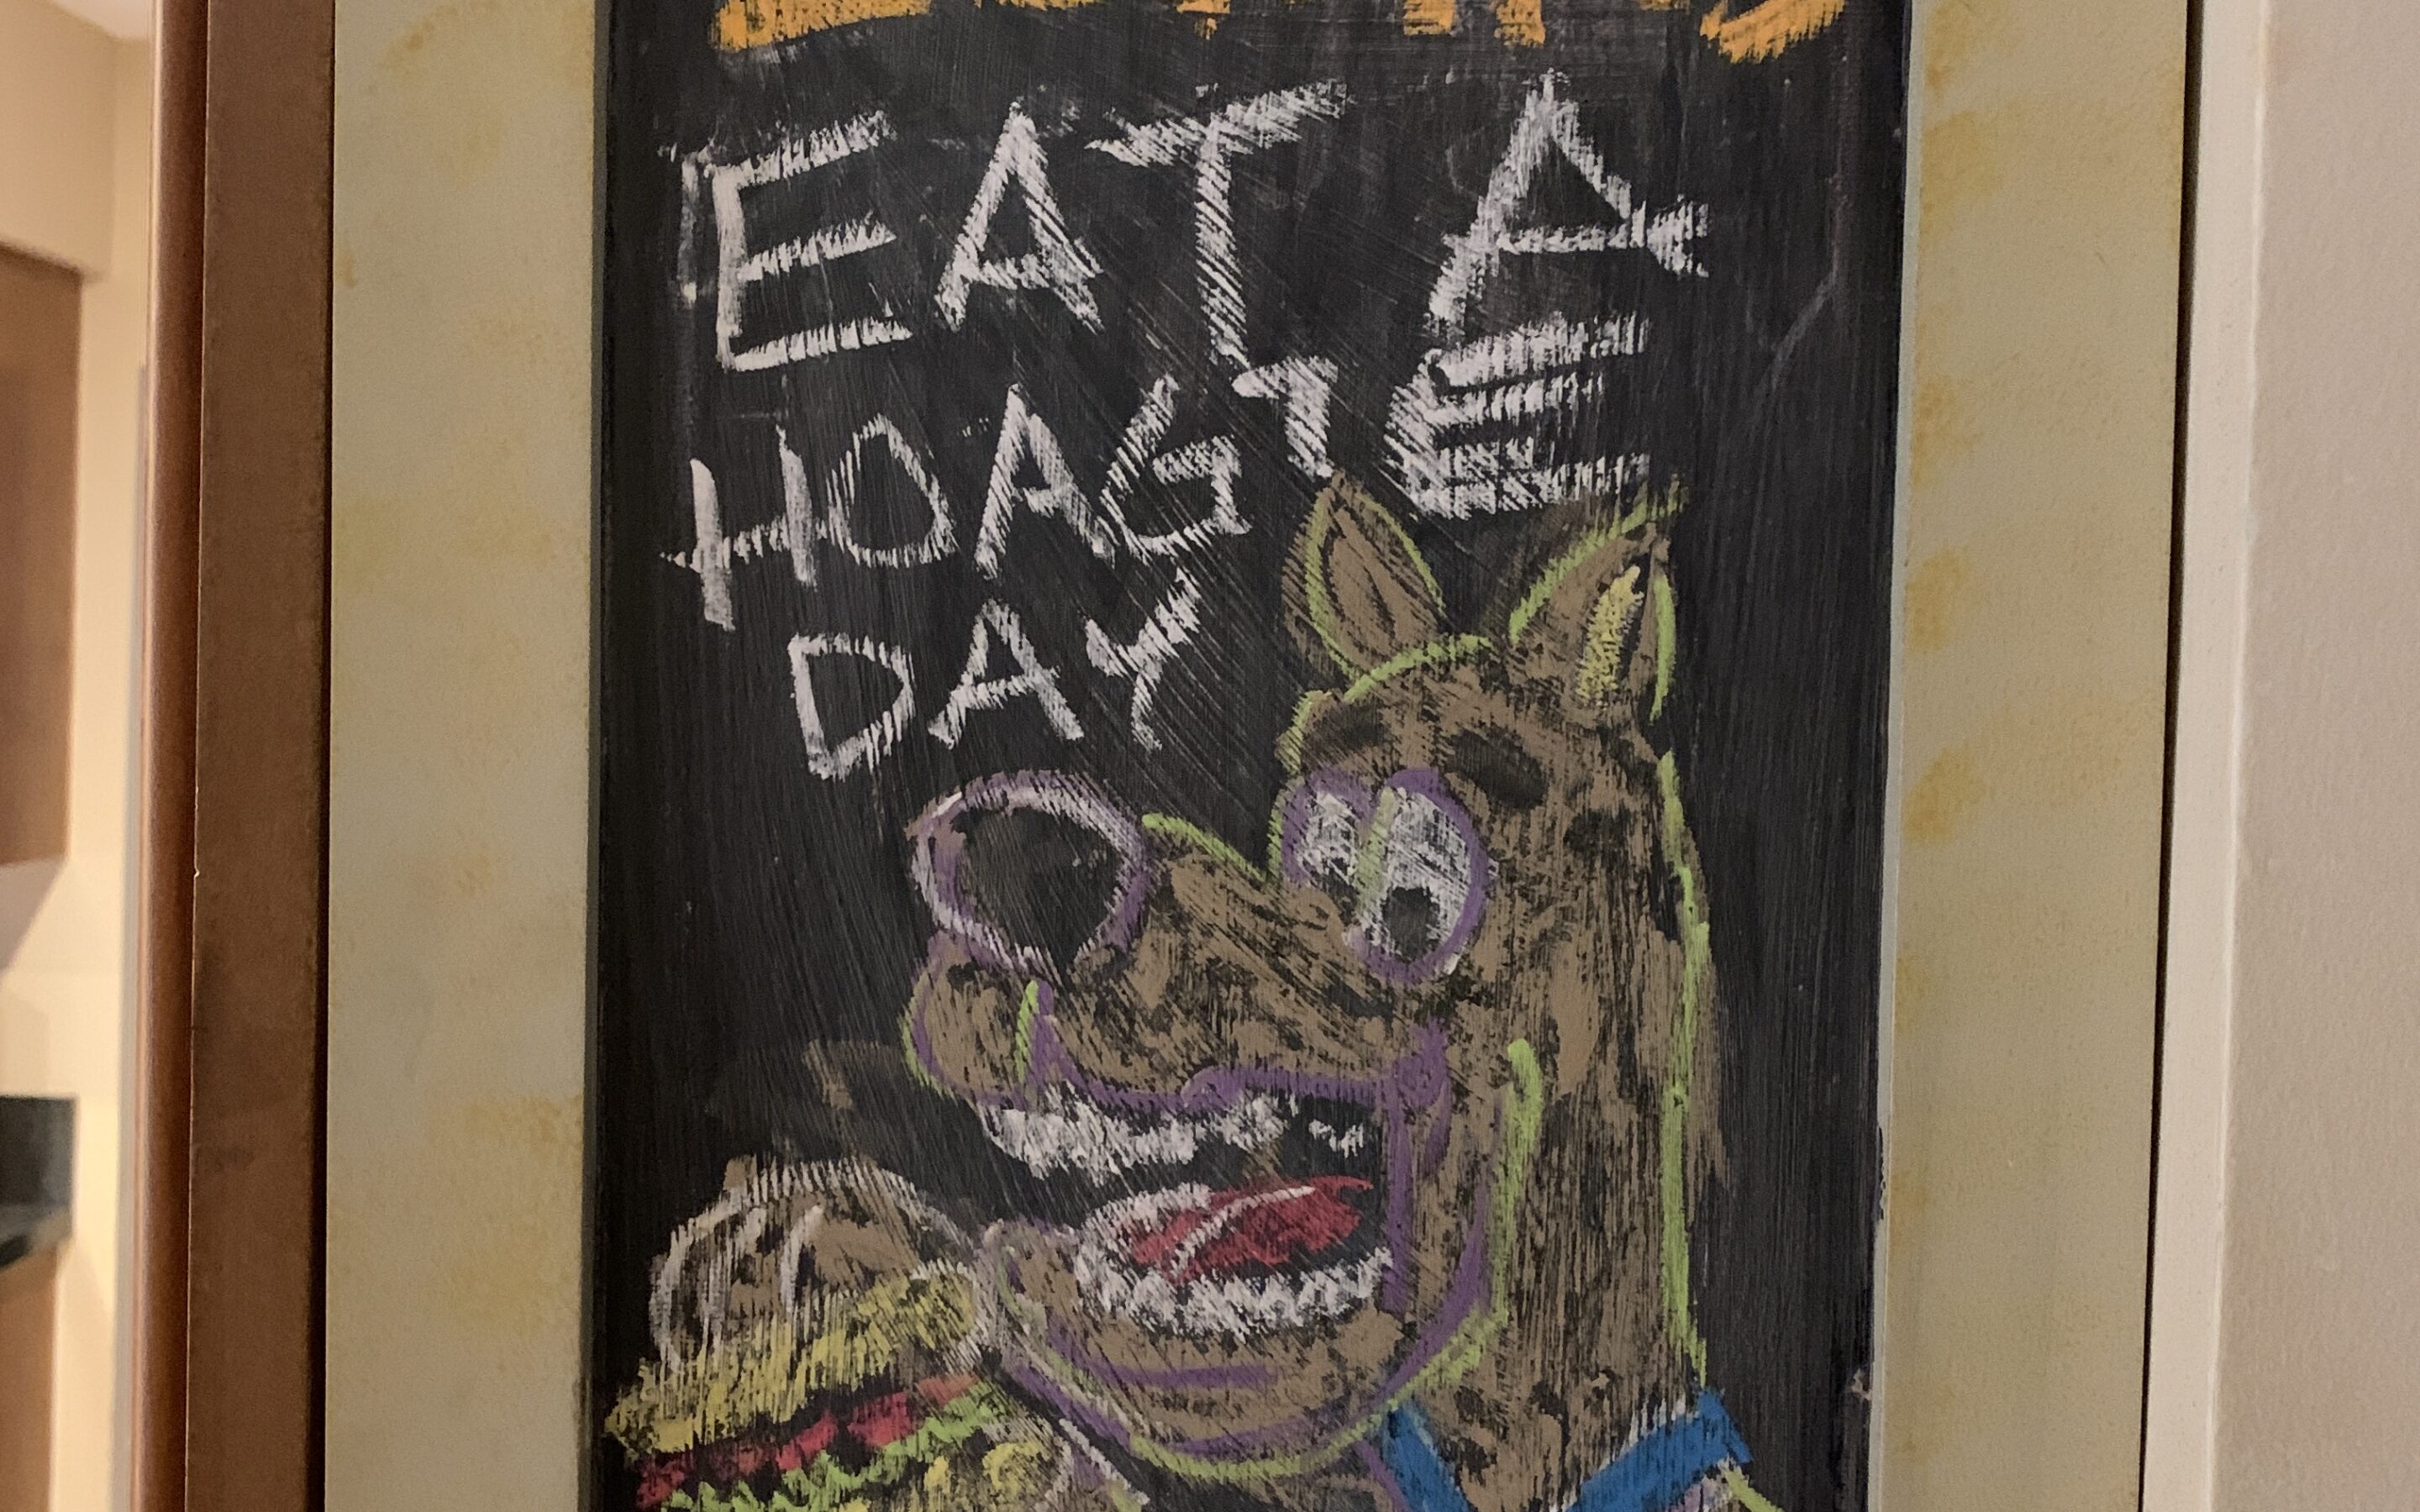 EAT A
HOAGIE
DAY